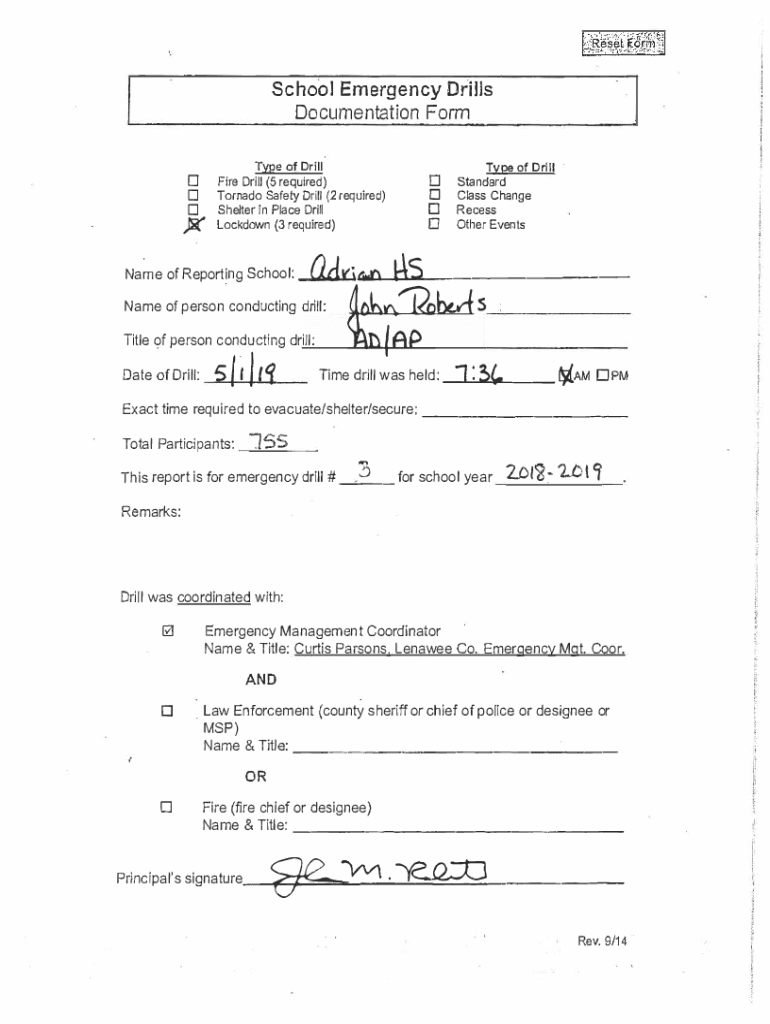 Reset Form
School Emergency Drills
Documentation Form
Type of Drill
☐ Fire Drill (5 required)
☐ Tornado Safety Drill (2 required)
☐ Shelter in Place Drill
☒ Lockdown (3 required)
Type of Drill
☐ Standard
☐ Class Change
☐ Recess
☐ Other Events
Name of Reporting School: Adrian HS
Name of person conducting drill: John Roberts
Title of person conducting drill: AD/AP
Date of Drill: 5/1/19 Time drill was held: 7:36 ☒ AM ☐ PM
Exact time required to evacuate/shelter/secure:
Total Participants: 755
This report is for emergency drill # 3 for school year 2018-2019.
Remarks:
Drill was coordinated with:
☑ Emergency Management Coordinator
Name & Title: Curtis Parsons, Lenawee Co. Emergency Mgt. Coor.
AND
☐ Law Enforcement (county sheriff or chief of police or designee or
MSP)
Name & Title:
OR
☐ Fire (fire chief or designee)
Name & Title:
Principal's signature
Rev. 9/14